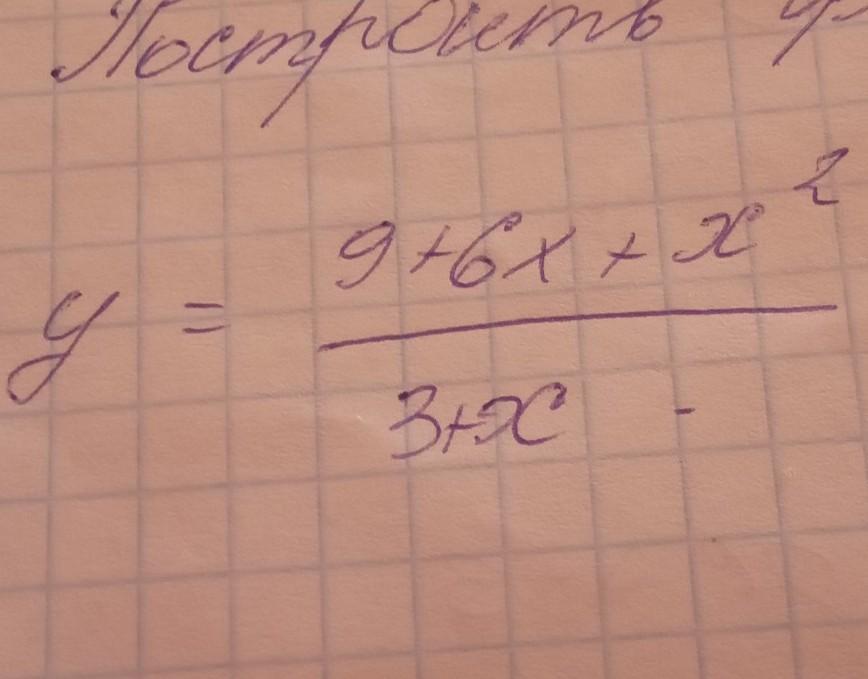 Построить
y = 9+6x+x²
3+x -